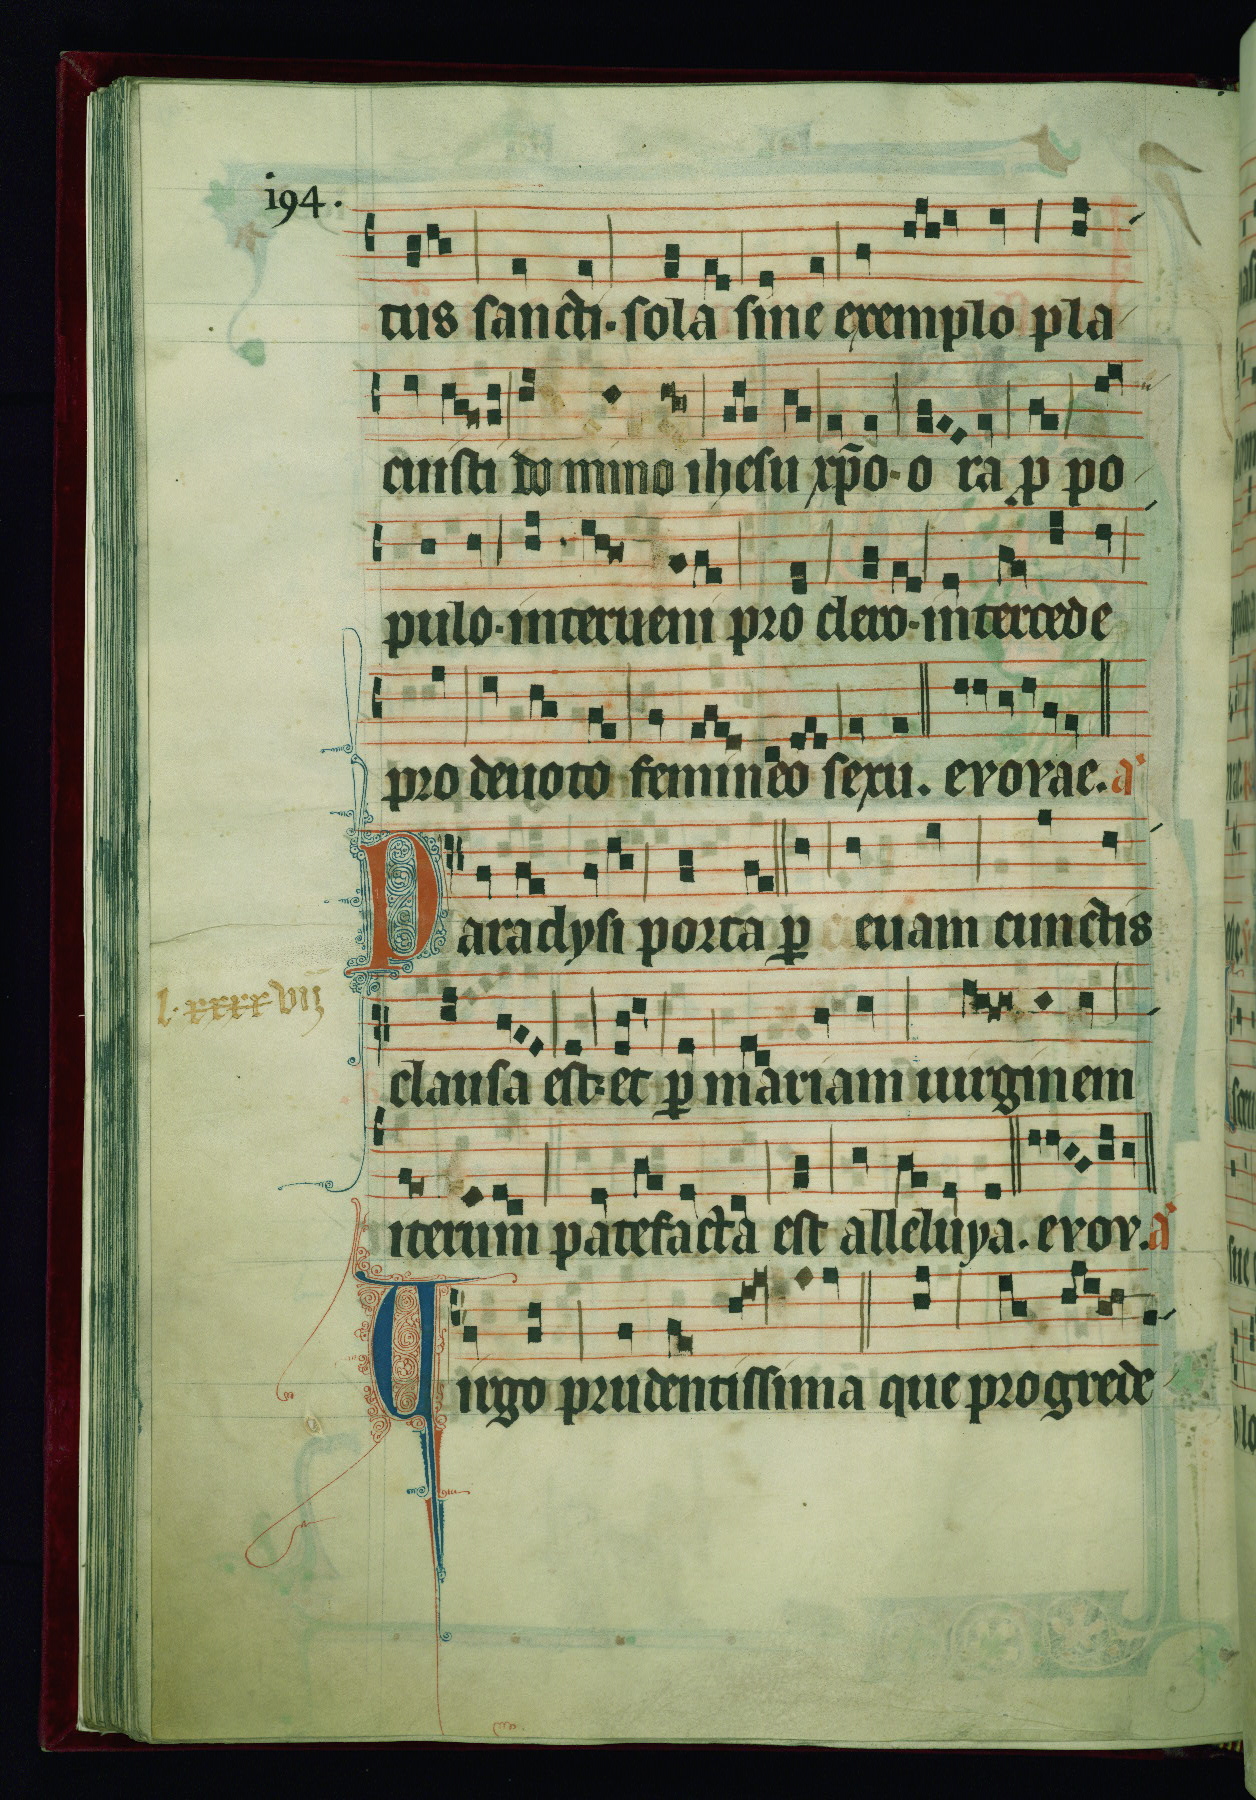 194.
tus sancti. sola sine exemplo pla
cuisti do mino ihesu xp̄o. o ra ꝓ po
pulo. interueni pro clero. intercede
pro deuoto femineo sexu. evovae. a
Paradysi porta ꝑ euam cunctis
l. xxxx vij
clausa est: et ꝑ mariam uirginem
iterum patefacta est alleluya. evov. a
Virgo prudentissima que progrede